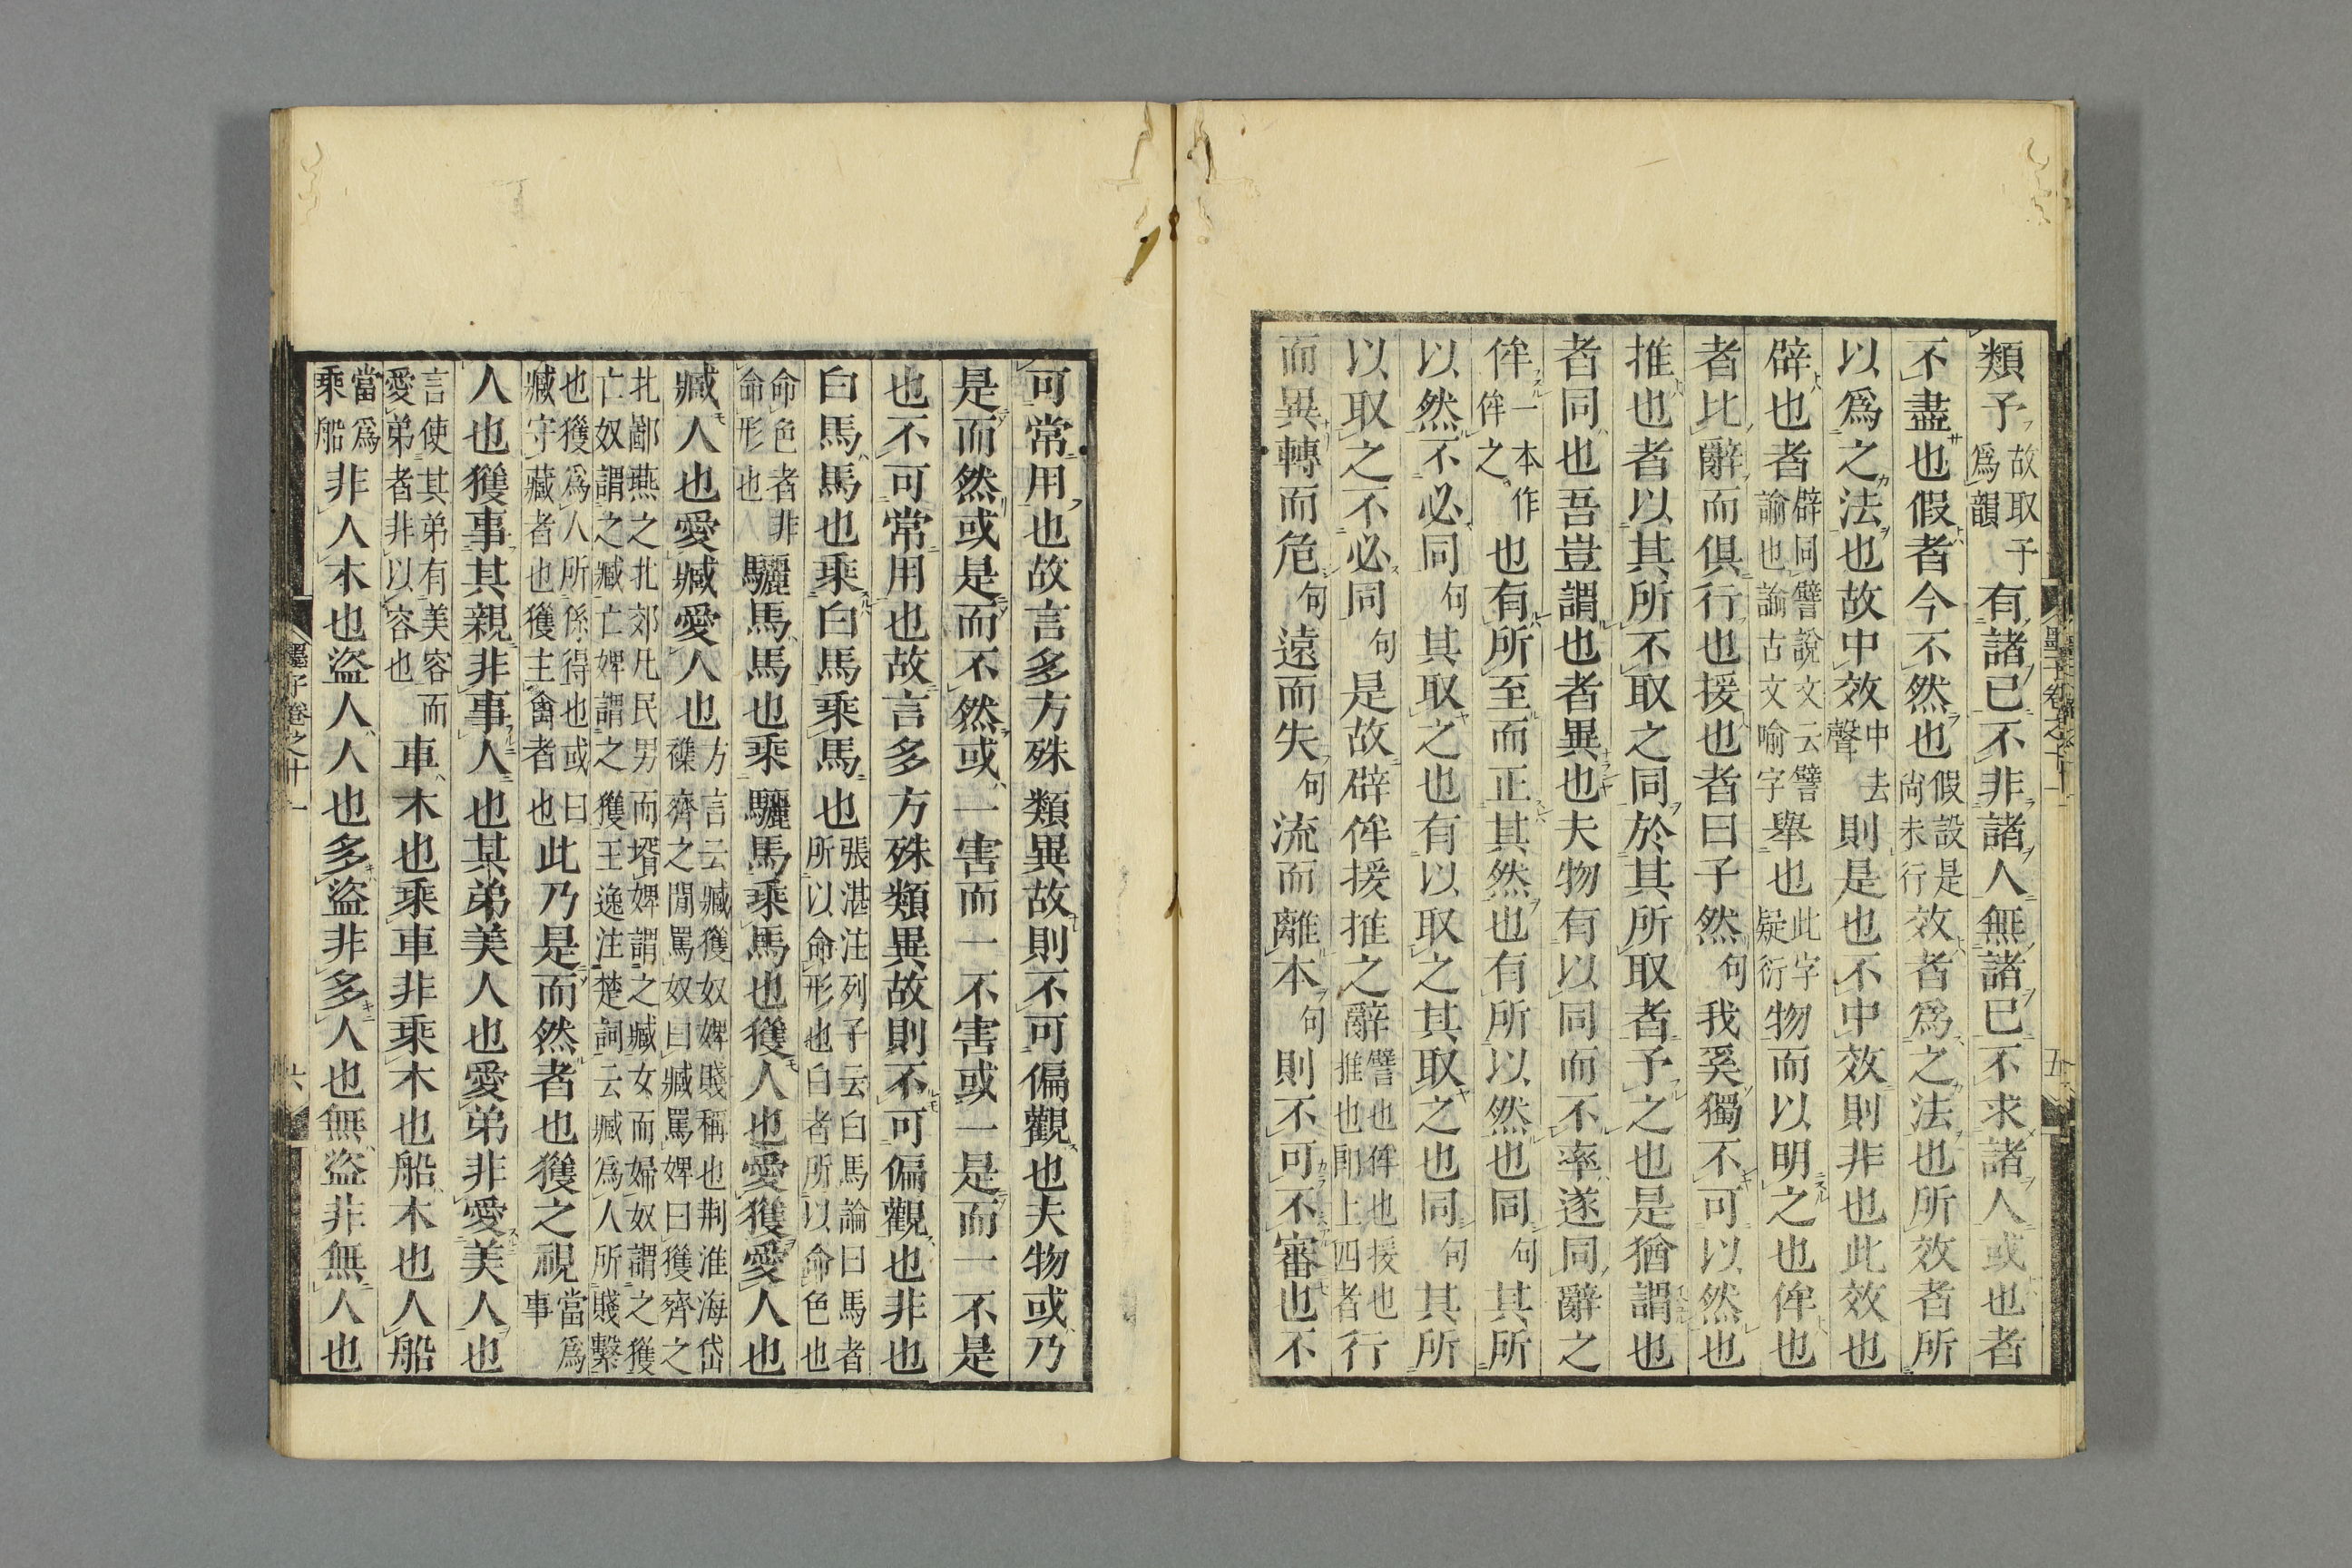 類予故取予爲韻有諸已不非諸人無諸已不求諸人或也者
不盡也假者今不然也假設是尚未行效者爲之法也所效者所
以爲之法也故中效中去聲則是也不中效則非也此效也
辟也者辟同譬說文云譬諭也諭古文喻字舉也此字疑衍物而以明之也侔也
者比辭而俱行也援也者曰子然句我奚獨不可以然也
推也者以其所不取之同於其所取者予之也是猶謂也
者同也吾豈謂也者異也夫物有以同而不率遂同辭之
侔一本作侔之也有所至而正其然也有所以然也同句其所
以然不必同句其取之也有以取之其取之也同句其所
以取之不必同句是故辟侔援推之辭譬也侔也援也推也即上四者行
而異轉而危句遠而失句流而離本句則不可不審也不
墨子卷之十一
五
可常用也故言多方殊類異故則不可偏觀也夫物或乃
是而然或是而不然或一害而一不害或一是而一不是
也不可常用也故言多方殊類異故則不可偏觀也非也
白馬馬也乘白馬乘馬也張湛注列子云白馬論曰馬者所以命形也白者所以命色也
命色者非命形也驪馬馬也乘驪馬乘馬也獲人也愛獲愛人也
臧人也愛臧愛人也方言云臧獲奴婢賤稱也荆淮海岱襍齊之閒罵奴曰臧罵婢曰獲齊之
北鄙燕之北郊凡民男而壻婢謂之臧女而婦奴謂之獲亡奴謂之臧亡婢謂之獲王逸注楚詞云臧爲人所賤繫
也獲爲人所係得也或曰臧守藏者也獲主禽者也此乃是而然者也獲之視當爲事
人也獲事其親非事人也其弟美人也愛弟非愛美人也
言使其弟有美容而愛弟者非以容也車木也乘車非乘木也船木也人船
當爲乘船非人木也盜人人也多盜非多人也無盜非無人也
墨子卷之十一
六